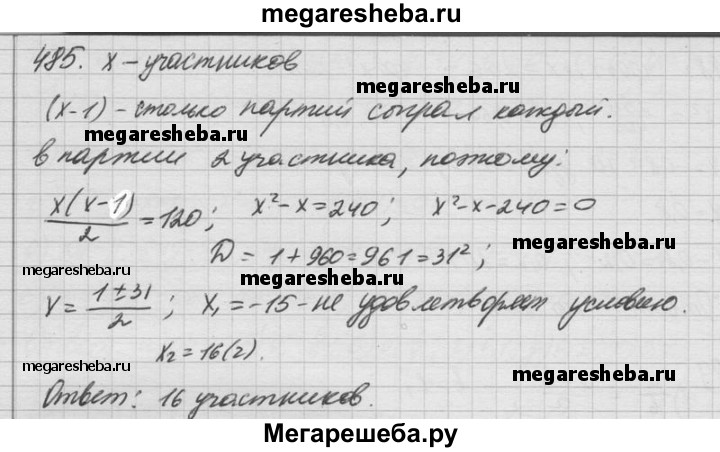 megaresheba.ru
485. x – участников
megaresheba.ru
(x-1) – столько партий сыграл каждый.
megaresheba.ru
в партии 2 участника, поэтому:
x(x-1)/2 = 120; x² - x = 240; x² - x - 240 = 0
megaresheba.ru
D = 1 + 960 = 961 = 31²;
megaresheba.ru megaresheba.ru
x = (1 ± 31)/2; x₁ = -15 - не удовлетворяет условию.
x₂ = 16(2).
megaresheba.ru megaresheba.ru
Ответ: 16 участников.
Мегарешеба.ру